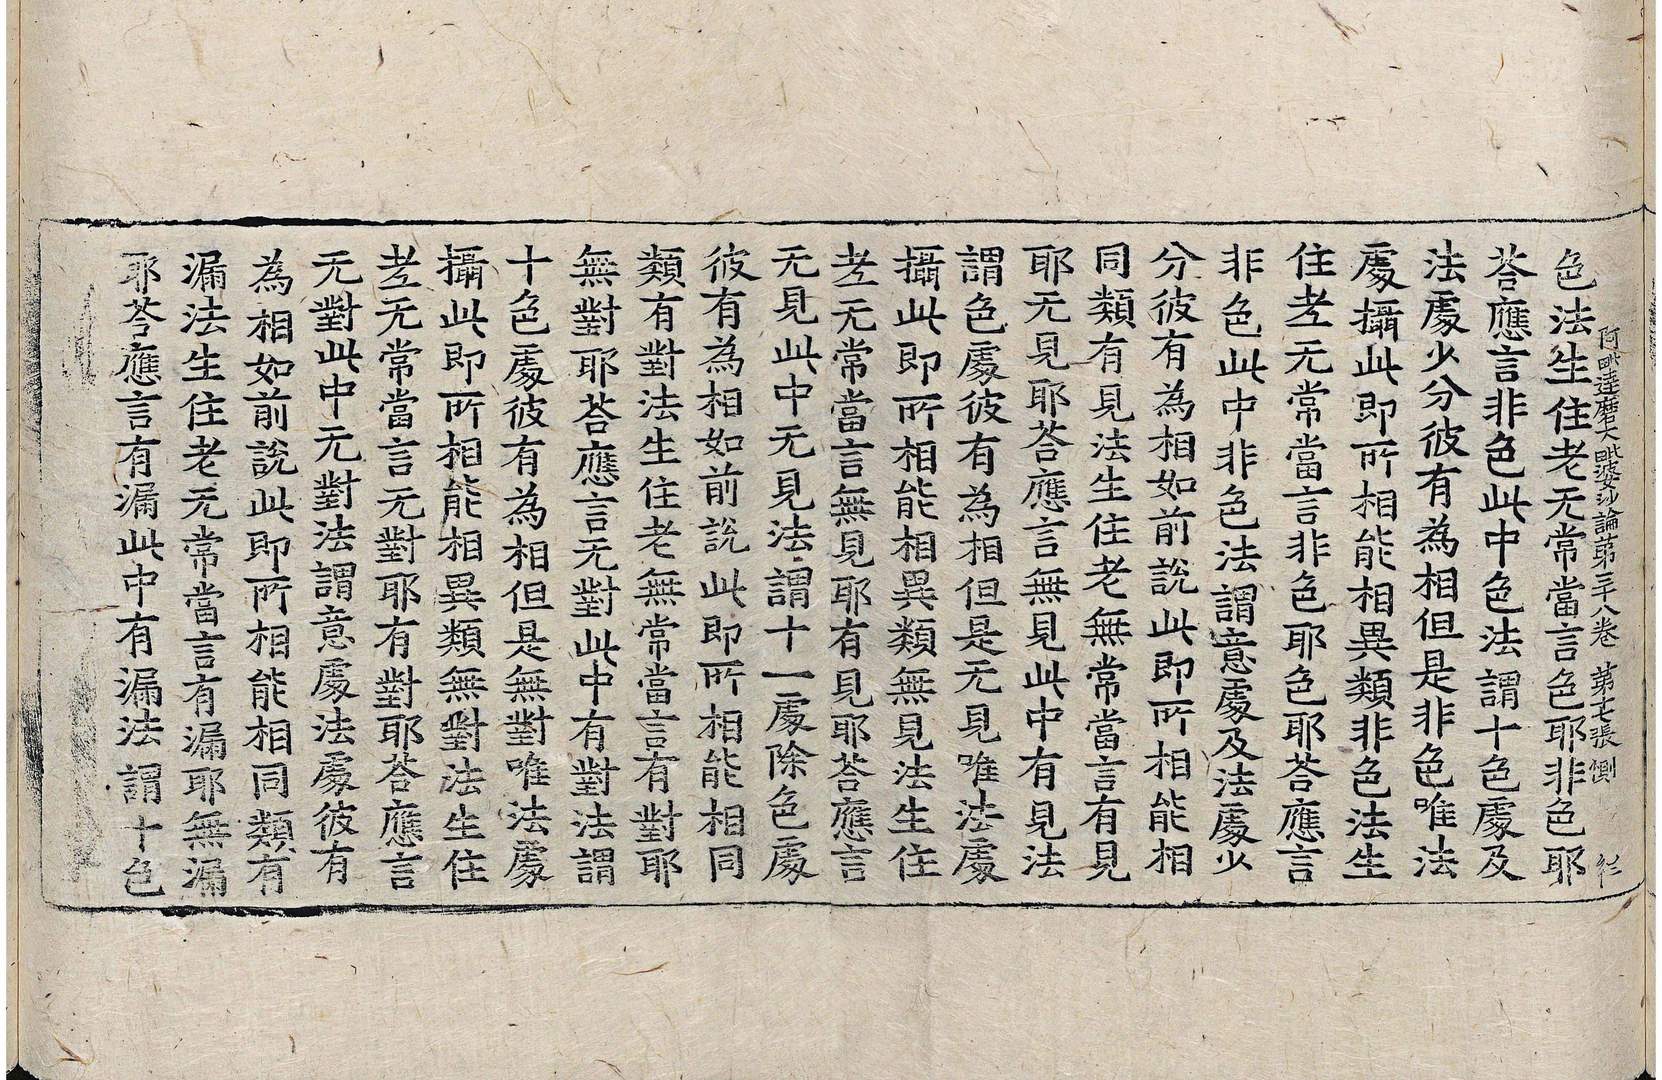 阿毗達磨大毗婆沙論苐三十八卷 第七張 惻
色法生住老无常當言色耶非色耶
荅應言非色此中色法謂十色處及
法處少分彼有為相但是非色唯法
處攝此即所相能相異類非色法生
住老无常當言非色耶色耶荅應言
非色此中非色法謂意處及法處少
分彼有為相如前說此即所相能相
同類有見法生住老無常當言有見
耶无見耶荅應言無見此中有見法
謂色處彼有為相但是无見唯法處
攝此即所相能相異類無見法生住
老无常當言無見耶有見耶荅應言
无見此中无見法謂十一處除色處
彼有為相如前說此即所相能相同
類有對法生住老無常當言有對耶
無對耶荅應言无對此中有對法謂
十色處彼有為相但是無對唯法處
攝此即所相能相異類無對法生住
老无常當言无對耶有對耶荅應言
无對此中无對法謂意處法處彼有
為相如前說此即所相能相同類有
漏法生住老无常當言有漏耶無漏
耶荅應言有漏此中有漏法謂十色